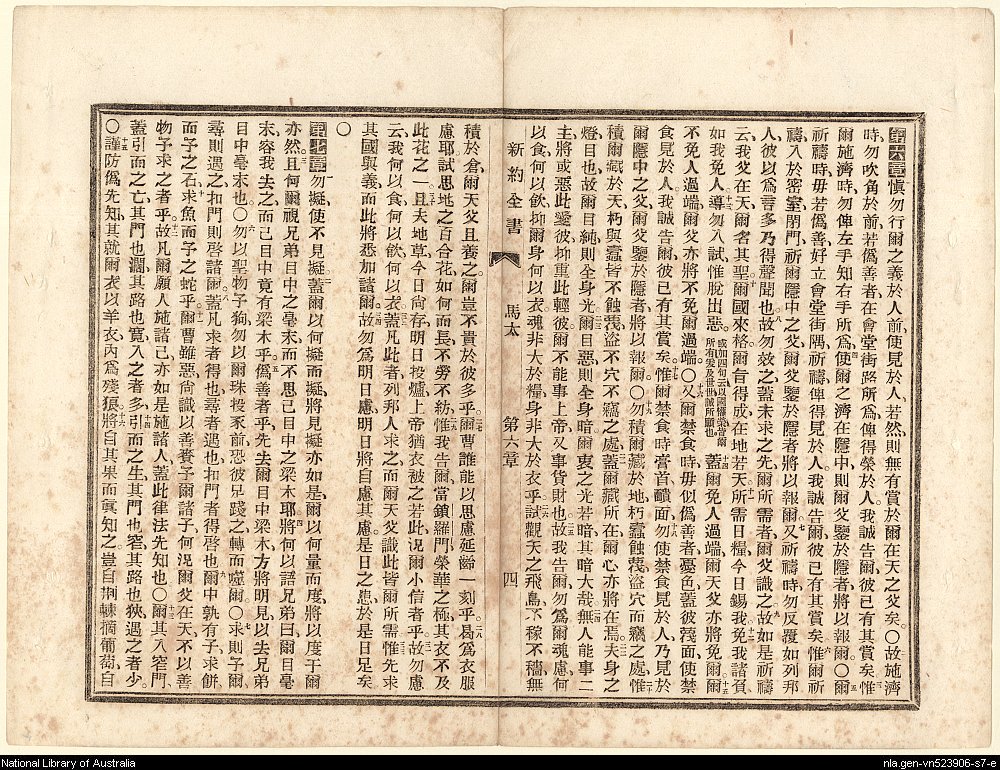 第六章愼勿行爾之義於人前、使見於人、若然、則無有賞於爾在天之父矣。〇故施濟
時、勿吹角於前、若僞善者、在會堂街路所爲、俾得榮於人、我誠告爾、彼已有其賞矣、惟
爾施濟時、勿俾左手知右手所爲、使爾之濟在隱中、則爾父鑒於隱者、將以報爾。〇爾
祈禱時、毋若僞善、好立會堂街隅祈禱、俾得見於人、我誠告爾、彼已有其賞矣、惟爾祈
禱、入於密室、閉門、祈爾隱中之父、爾父鑒於隱者、將以報爾。又祈禱時、勿反覆如列邦
人、彼以爲言多乃得聲聞也。故勿效之、蓋未求之先、爾所需者、爾父識之。故如是祈禱
云、我父在天、爾名其聖、爾國來格、爾旨得成、在地若天、所需日糧、今日錫我、免我諸負、
如我免人、導勿入試、惟脫出惡。蓋爾免人過端、爾天父亦將免爾、爾
不免人過端、爾父亦將不免爾過端。〇又爾禁食時、毋似僞善者憂色、蓋彼蔑面、使禁
食見於人、我誠告爾、彼已有其賞矣。惟爾禁食時、膏首面、勿使禁食見於人、乃見於
爾隱中之父、爾父鑒於隱者、將以報爾。〇勿積爾藏於地、朽蠹蝕蔑、盜穴而竊之處、惟
積爾藏於天、朽與蠹皆不蝕蔑、盜不穴不竊之處、蓋爾藏所在、爾心亦將在焉。夫身之
燈、目也、故爾目純、則全身光、爾目惡、則全身暗、爾衷之光若暗、其暗大哉。無人能事二
主、將或惡此愛彼、抑重此輕彼、爾不能事上帝、又事貨財也。故我告爾、勿爲爾魂慮、何
以食、何以飲、抑爾身、何以衣、魂非大於糧、身非大於衣乎、試觀天之飛鳥、不稼不穡、無
新約全書 馬太 第六章 四
積於倉、爾天父且養之、爾豈不貴於彼多乎。爾曹誰能以思慮延齡一刻乎。曷爲衣服
慮耶、試思地之百合花、如何而長、不勞不紡、惟我告爾、當鎖羅門榮華之極、其衣不及
此花之一。且夫地草、今日尙存、明日投爐、上帝猶衣被之若此、况爾小信者乎。故勿慮
云、我何以食、何以飲、何以衣、蓋凡此者、列邦人求之、而爾天父識此皆爾所需、惟先求
其國與義、而此將悉加諸爾、故勿爲明日慮、明日將自慮其慮。是日之患、於是日足矣
〇
第七章勿擬、使不見擬、蓋爾以何擬而擬、將見擬亦如是、爾以何量而度、將以度于爾
亦然。且何爾視兄弟目中之毫末、而不思己目中之梁木耶、將何以語兄弟曰、爾目毫
末、容我去之、而己目中竟有梁木乎。僞善者乎、先去爾目中梁木、方將明見以去兄弟
目中毫末也。〇勿以聖物予狗、勿以爾珠投豕前、恐彼足踐之、轉而噬爾。〇求則予爾、
尋則遇之、扣門則啓諸爾、蓋凡求者得也、尋者遇也、扣門者得啓也、爾中孰有子求餅、
而予之石、求魚、而予之蛇乎、爾曹雖惡、尙識以善養予爾諸子、何况爾父在天、不以善
物予求之者乎。故凡爾願人施諸己、亦如是施諸人、蓋此律法先知也。〇爾其入窄門、
蓋引而之亡、其門也闊、其路也寬、入之者多、引而之生、其門也窄、其路也狹、遇之者少。
〇謹防僞先知、其就爾、衣以羊衣、內爲殘狼、將自其果而眞知之。豈自荆棘摘葡萄、自